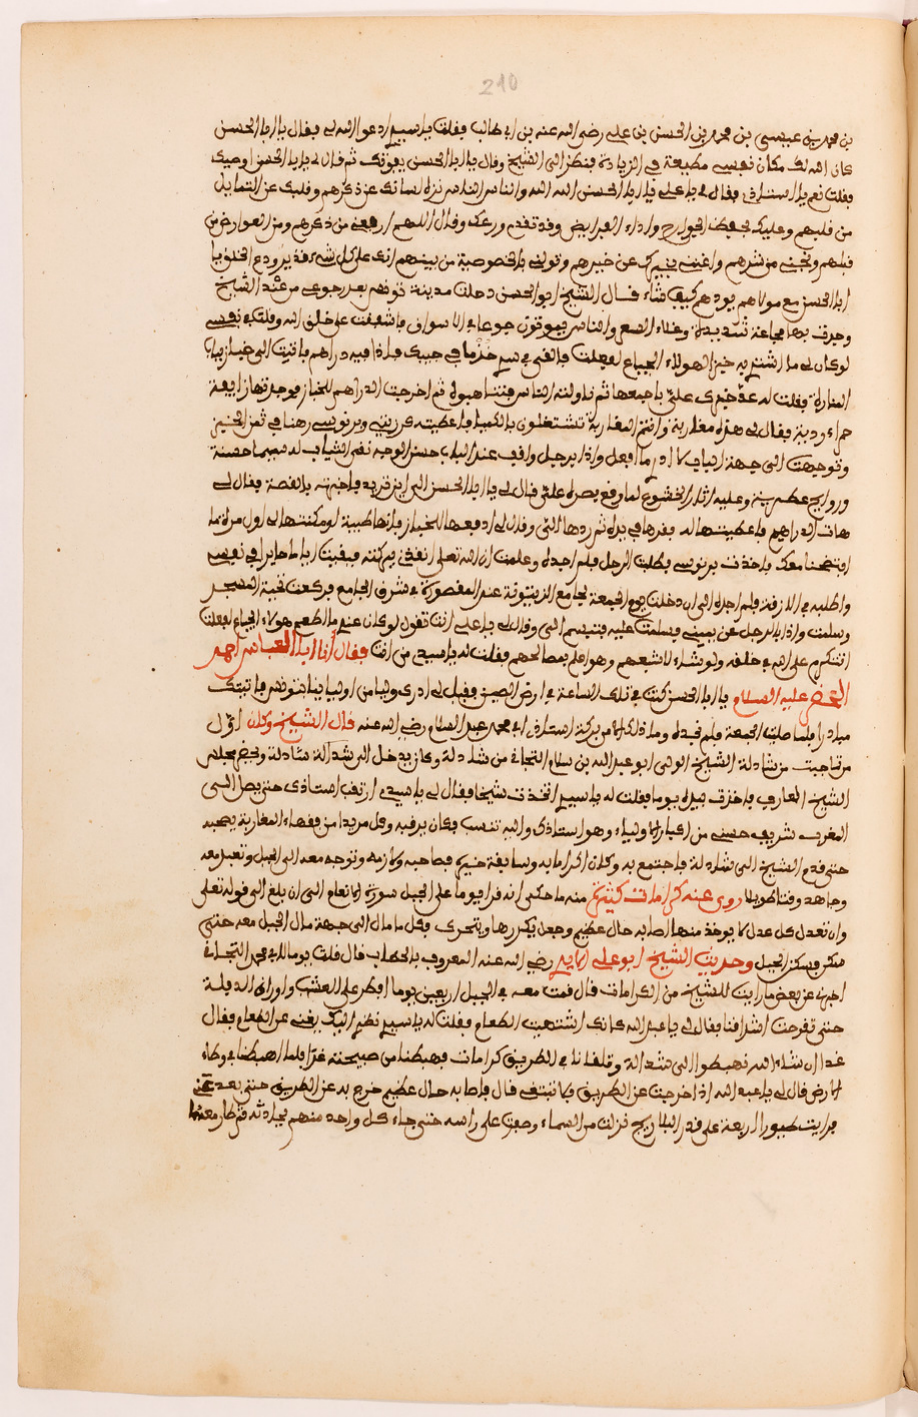 210
بن محمد بن عيسى بن محمد بن الحسن بن علي رضي الله عنه بن ابي طالب فقلت يا سيدي ادعوا الله لي فقال يا ابا الحسن
كان الله لك مكان نفسي مطيعة في الزيادة فنظر الى الشيخ وقال يا ابا الحسن يفوتك ثم قال لي يا ابا الحسن اوصيك
فقلت نعم يا استاذي فقال لي يا علي يا ابا الحسن الله الله والناس الناس نزه لسانك عن ذكرهم وقلبك عن التمايل
من قبلهم وعليك بحفظ الجوارح واداء الفرايض وقد تقدم ورعك وقال اللهم ارحمني من ذكرهم ومن العوارض من
قبلهم ونجني من شرهم واغنني بخيرك عن خيرهم وتولني بالخصوصية من بينهم انك على كل شيء قدير ودع الخلق يا
ابا الحسن مع مولاهم يودهم كيف شاء قال الشيخ ابو الحسن دخلت مدينة تونس بعد رجوعي من عند الشيخ
وجدت بها مجاعة شديدة وغلاء السعر والناس يموتون جوعا في الاسواق فاشفقت على خلق الله وقلت في نفسي
لو كان لي ما اشتري به خبزا لهولاء الجياع لفعلت فالقي في سري خذ ما في جيبك فاذا فيه دراهم فاتيت الى خباز بباب
المنارة فقلت له عد خبزك علي باجمعها ثم ناولته الناس فتناهبوه ثم اخرجت الدراهم للخباز فوجدتها زايفة
حمراء ردية فقال لي هذه مغاربة وانتم المغاربة تشتغلون بالكيميا فاعطيته كرزيتي وبرنوسي رهنا في ثمن الخبز
وتوجهت الى جهة الباب لا ادري ما افعل واذا برجل واقف عند الباب حسن الوجه نقي الثياب له سيما حسنة
وروايح عطرية وعليه اثار الخشوع لما وقع بصره علي قال لي يا ابا الحسن الى اين تريد فاخبرته بالقصة فقال لي
هات الدراهم فاعطيتها له فهزها في يده ثم ردها الي وقال لي ادفعها للخباز فانها طيبة لو مكنتها لي اول مرة ما
افتضحنا معك فاخذت برنوسي فطلبت الرجل فلم اجده وعلمت ان الله تعالى انقذني ببركته فبقيت اياما حايرا في نفسي
واطلبه في الازقة فلم اجده الى ان دخلت يوم الجمعة لجامع الزيتونة عند المقصورة في شرق الجامع فركعت تحية المسجد
وسلمت واذا بالرجل عن يميني فسلمت عليه فتبسم الي وقال لي يا علي انت تقول لو كان عندي ما اطعم هولاء الجياع لفعلت
اتتكرم على الله في خلقه ولو شاء لاشبعهم وهو اعلم بمصالحهم فقلت له يا سيدي من انت فقال انا ابا العباس احمد
الخضر عليه السلام يا ابا الحسن كنت في تلك الساعة في ارض الصين فقيل لي ادرك وليا من اوليائنا بتونس فاتيتك
مبادرا فلما صليت الجمعة فلم نجده وما ذلك الا من بركة استاذي ابي محمد عبد السلام رضي الله عنه قال الشيخ وكان اول
من صاحبت من شاذلة الشيخ الولي ابو عبد الله بن سلام التجافي من شاذلة وكان يدخل الى شاذلة ويحضر مجلس
الشيخ العارف فاخذت بيده يوما فقلت له يا سيدي اتخذت شيخا فقال لي يا سيدي ارتقب استاذي حتى يصل الى
المغرب شريف حسني من اكبار الاولياء وهو استاذي والله تنسب فكان يرقبه وكل مريدا من فقهاء المغاربة يصحبه
حتى قدم الشيخ الى شاذلة فاجتمع به وكان اكرامه وسابقة خير فصاحبه ولازمه وتوجه معه الى الجبل وتعبد معه
وجاهد وقتا طويلا روي عنه كرامات كثيرة منه ما حكى انه قرا يوما على الجبل سورة الانعام الى ان بلغ الى قوله تعلى
وان تعدل كل عدل لا يوخذ منها اصابه حال عظيم وجعل يكررها ويتحرك فكل ما مال الى جهة مال الجبل معه حتى
سكن فسكن الجبل وحديث الشيخ ابو علي رضي الله عنه المعروف بالحطاب قال قلت يوما لابي محمد التجافي
اخبرنا عن بعض ما رايت للشيخ من الكرامات قال قمت معه في الجبل اربعين يوما افطر على العشب واوراق الدفلة
حتى تقرحت اشداقنا فقال لي يا عبد الله كانك اشتهيت الطعام فقلت له يا سيدي نظري اليك يغني عن الطعام فقال
غدا ان شاء الله نهبطوا الى شاذلة وتلقانا في الطريق كرامات فهبطنا من صبيحته غدا فلما هبطنا في وطاء
الارض قال لي يا عبد الله اذا خرجت عن الطريق فلا تتبعني قال فاصابه حال عظيم خرج به عن الطريق حتى بعد عني
فرايت طيورا اربعة على قدر البلارج نزلت من السماء وصفت على راسه حتى جاء كل واحد منهم يحادثه ثم طار معهم